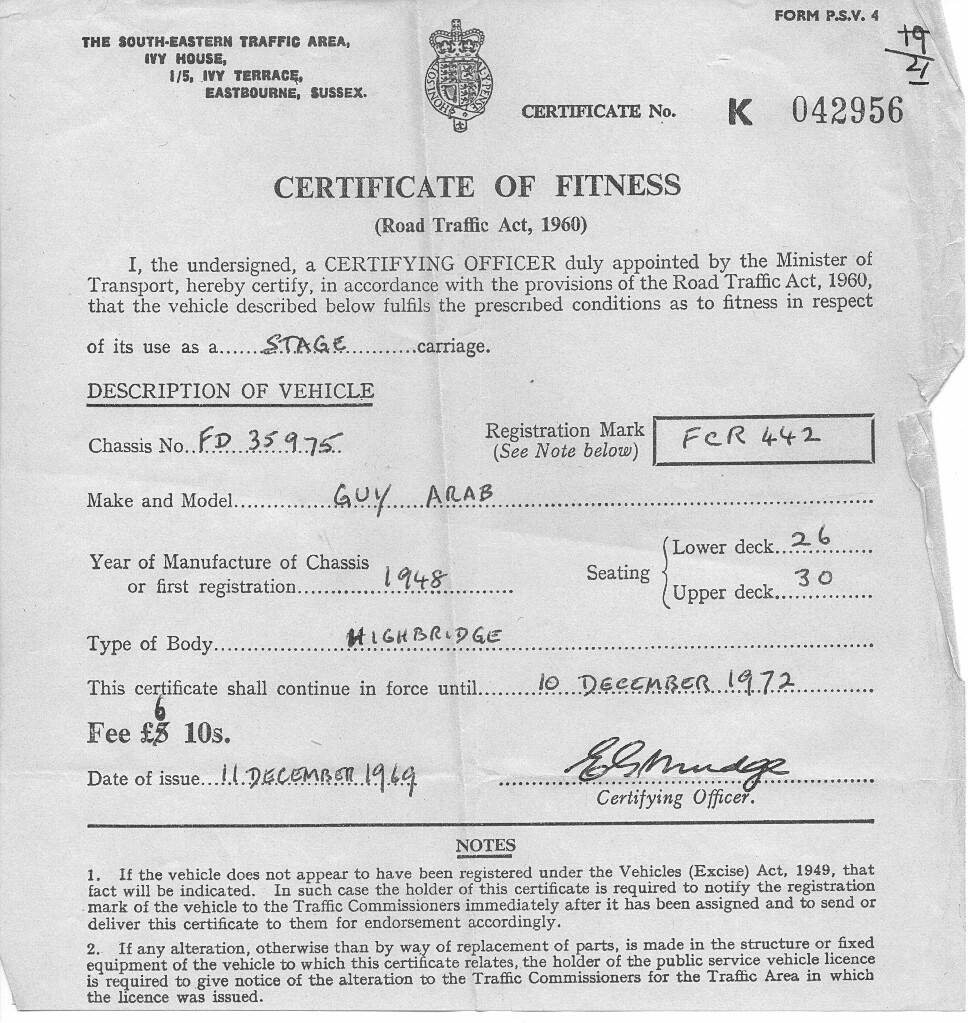 FORM P.S.V. 4
19
21
THE SOUTH-EASTERN TRAFFIC AREA,
IVY HOUSE,
1/5, IVY TERRACE,
EASTBOURNE, SUSSEX.
CERTIFICATE No. K 042956
CERTIFICATE OF FITNESS
(Road Traffic Act, 1960)
I, the undersigned, a CERTIFYING OFFICER duly appointed by the Minister of
Transport, hereby certify, in accordance with the provisions of the Road Traffic Act, 1960,
that the vehicle described below fulfils the prescribed conditions as to fitness in respect
of its use as a......STAGE..........carriage.
DESCRIPTION OF VEHICLE
Chassis No. FD 35975
Registration Mark FCR 442
(See Note below)
Make and Model GUY ARAB
Year of Manufacture of Chassis
or first registration 1948
Seating
Lower deck 26
Upper deck 30
Type of Body HIGHBRIDGE
This certificate shall continue in force until 10 DECEMBER 1972
6
Fee £5 10s.
Date of issue 11 DECEMBER 1969
Certifying Officer.
NOTES
1. If the vehicle does not appear to have been registered under the Vehicles (Excise) Act, 1949, that
fact will be indicated. In such case the holder of this certificate is required to notify the registration
mark of the vehicle to the Traffic Commissioners immediately after it has been assigned and to send or
deliver this certificate to them for endorsement accordingly.
2. If any alteration, otherwise than by way of replacement of parts, is made in the structure or fixed
equipment of the vehicle to which this certificate relates, the holder of the public service vehicle licence
is required to give notice of the alteration to the Traffic Commissioners for the Traffic Area in which
the licence was issued.